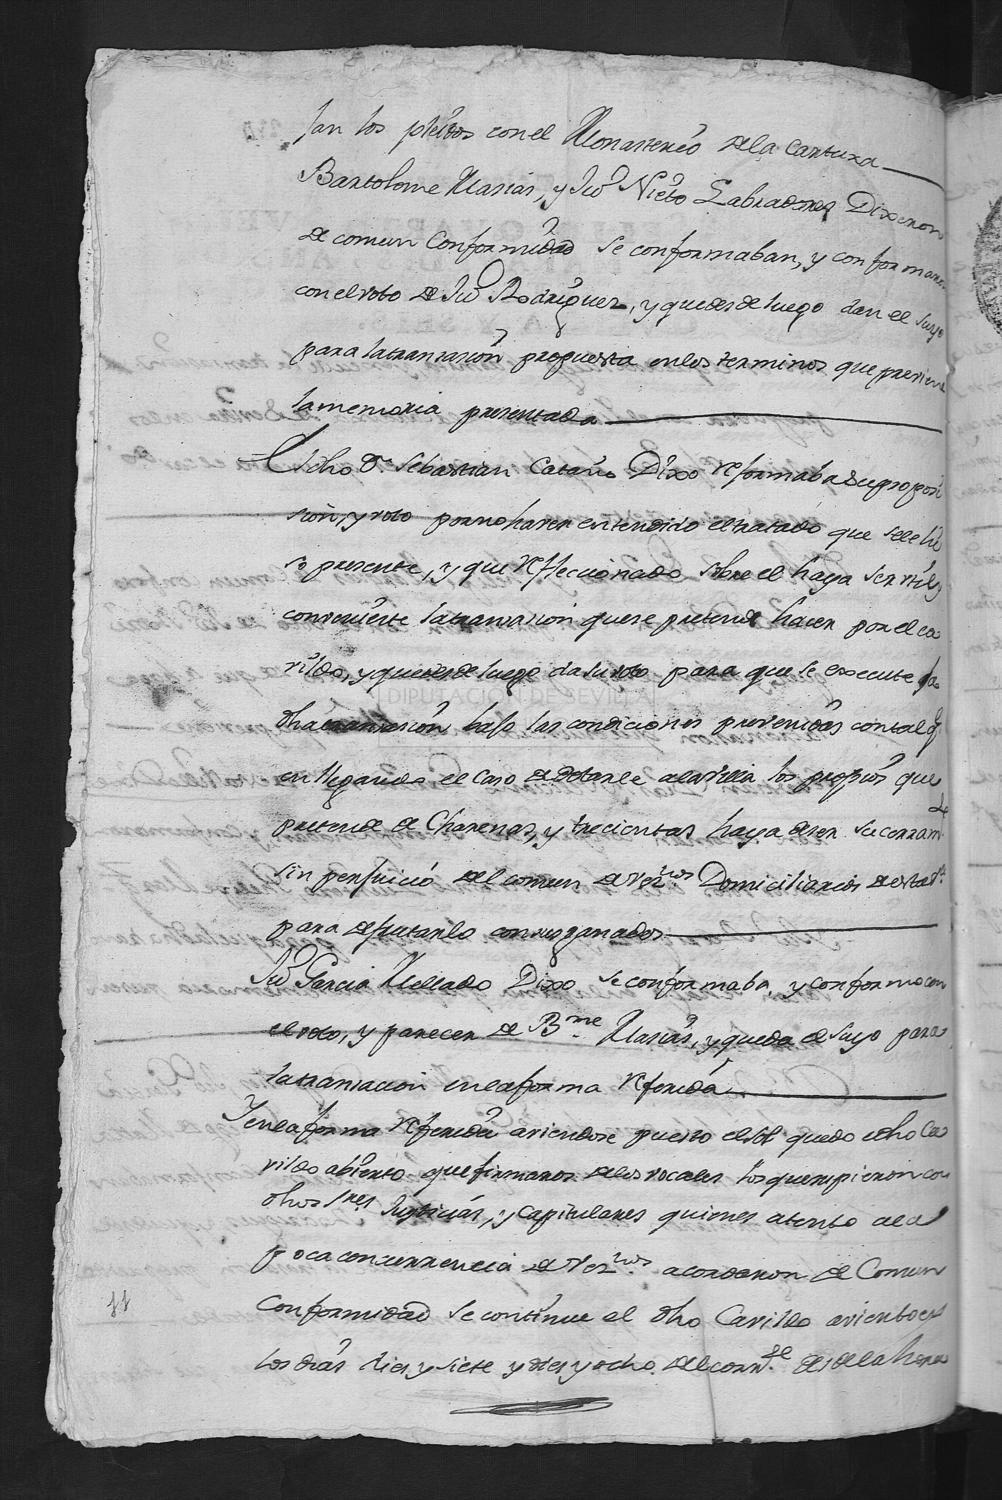 tan los pleitos con el Monasterio de la Cartuxa
Bartolome Masias, y Juº Nieto Labradores Dixeron
de comun Conformidad se conformaban, y conformaron
con el voto de Juº Rodriguez, y que desde luego dan el suyo
para la transacion propuesta en los terminos que previene
la memoria presentada
El dho Dn Sebastian Cataño Dixo reformaba su propoci
sion, y voto por no haver entendido el tratado que se le hi
so presente, y que refleccionado sobre el haya ser util y
conveniente la transacion que se pretende hacer por el ca
vildo, y que desde luego da su voto para que se execute la
dha transacion baxo las condiciones prevenidas con tal q.
en llegando el caso de darle a la villa los propios que
pretende de Charenas, y trecientas haya de ser su cerram.to
sin perjuicio del comun de vez.nos Domiciliarios de esta V.ª
para disfrutarlo con sus ganados
Juº Garcia Mellado Dixo se conformaba, y conformo con
el voto, y parecer de B.me Masias, y queda el suyo para
la transacion en la forma referida
Y en la forma referida aviendose puesto el sol quedo el dho Ca
vildo abierto que firmaron de los vocales los que supieron con
dhos S.res Justicias, y Capitulares quienes atento a la
poca concurrencia de vez.nos acordaron de Comun
Conformidad se continue el dho Cavildo avierto en
los dias dies y siete y dies y ocho del corr.te desde la hora
11
DIPUTACIÓN DE SEVILLA